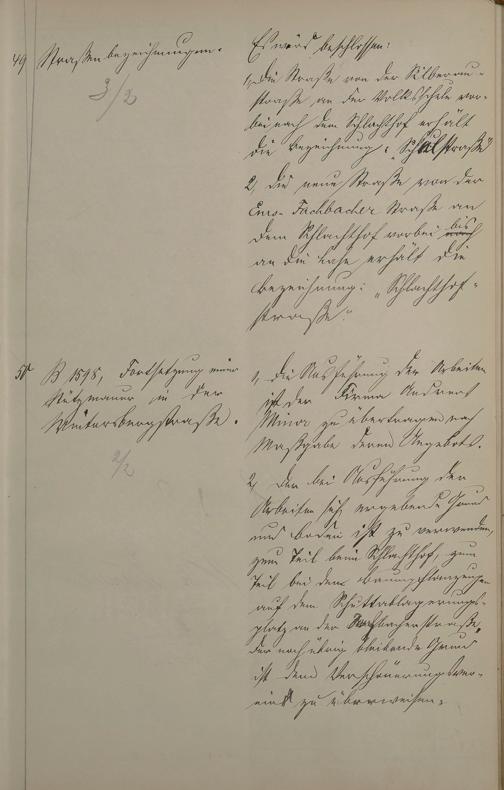 49 Straßenbezeichnungen.
3/2
Es wird beschlossen:
1, Die Straße von der Silberau-
straße an der Volksschule vor-
bei nach dem Schlachthof erhält
die Bezeichnung: „Schulstraße"
2, die neue Straße von der
Ems-Fachbacher Straße an
dem Schlachthof vorbei bis
an die Lahn erhält die
Bezeichnung: „Schlachthof-
straße".
50 B 1598, Fortsetzung einer
Stützmauer in der
Wintersbergstraße.
2/2
1, die Ausführung der Arbeiten
ist der Firma
zu übertragen nach
Maßgabe deren Angebots.
2, Der bei Ausführung der
Arbeiten sich ergebende Grund
und Boden ist zu verwenden,
zum Teil beim Schlachthof, zum
Teil bei den Baumpflanzungen
auf dem Schuttablagerungs-
platz an der straße,
der noch übrig bleibende Grund
ist dem Verschönerungsver-
ein zu überweisen.